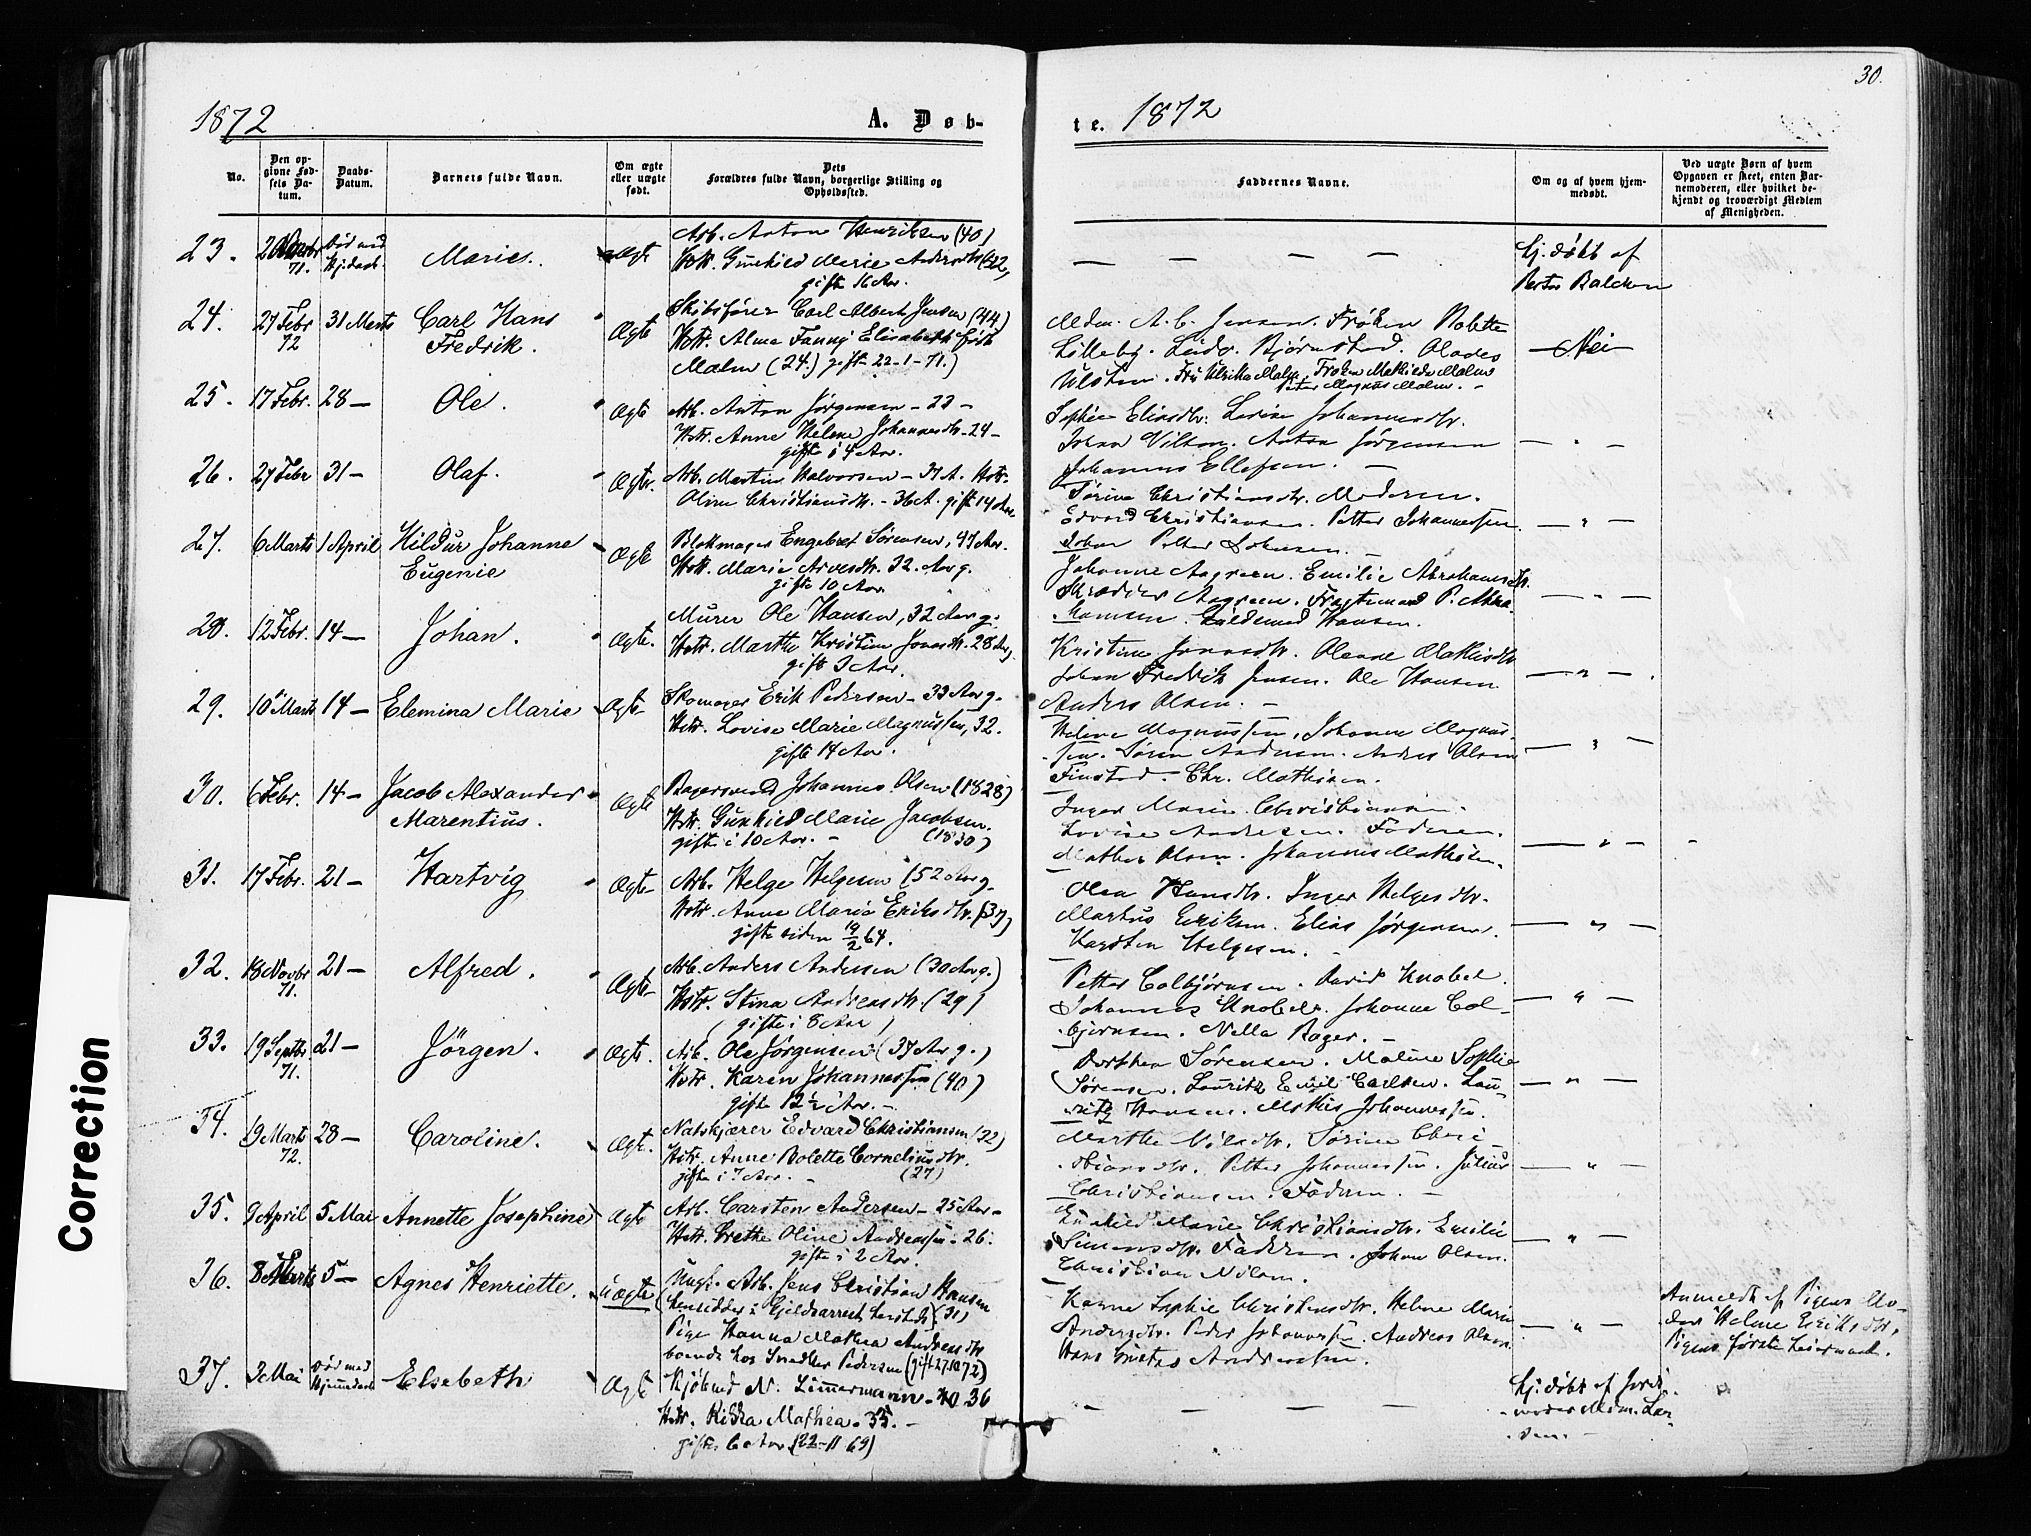 30.
1872
A. Døb-
te. 1872
No.
Den op-
givne Fød-
sels Da-
tum.
Daabs-
Datum.
Barnets fulde Navn.
Om ægte
eller uægte
født.
Dets
Forældres fulde Navn, borgerlige Stilling og
Opholdssted.
Faddernes Navne.
Om og af hvem hjem-
medøbt.
Ved uægte Børn af hvem
Opgaven er skeet, enten Bar-
nemoderen, eller hvilket be-
kjendt og troværdigt Medlem
af Menigheden.
23.
71.
Død med
Hj.daab.
Maries.
Ægte
Arb. Anton Henriksen (40)
Hstr. Gunhild Marie Andersdtr
gifte 16 Aar.
— — — —
Hj. døbt af
24.
27 Febr
72
31 Marts
Carl Hans
Fredrik.
Ægte
Skibsfører Carl Albert Jensen (44)
Hstr. Alma Fanny Elisabeth født
Malm (24.) gift 22-1-71.)
Mdm. A. C. Jensen. Frøken Bolette
Lilleby. Ludv. Bjørnstad.
Ulsten. Fru Ulrikka Malm. Frøken Mathilde Malm
Peter Magnus Malm. -
— Nei —
25.
17 Febr.
28 —
Ole.
Ægte
Arb. Anton Jørgensen - 22 -
Hstr. Anne Helene Johannesdtr. - 24 -
gifte i 4 Aar.
Sophie Eliasdtr. Lovise Johannesdtr.
Johan Nilsen. Anton Jørgensen
Johannes Ellefsen. —
— " —
26.
27 Febr
31 —
Olaf.
Ægte.
Arb. Martin Halvorsen - 37 A. Hstr.
Oline Christiansdtr. - 36 A. gift 14 Aar.
Sørine Christiansdtr. Moderen.
Edvard Christiansen. Petter Johannessen.
Johan Petter Johnsen. —
— " —
27.
6 Marts
1 April
Hildur Johanne
Eugenie
Ægte
Blokmager Engebret Sørensen, 47 Aar.
Hstr. Marie Arvesdtr. 32. Aar g.
gifte 10 Aar.
Johanne Aagreen. Emilie Abrahamsdtr.
Skrædder Aagreen. Fragtemand P. Abra-
hamsen. Guldsmed Hansen.
— " —
28.
12 Febr.
14 —
Johan.
Ægte.
Murer Ole Hansen, 32 Aar g.
Hstr. Marthe Kristine Jonasdtr. 28 Aar g.
gift 3 Aar.
Kristine Jonasdtr. Olande Mathisdtr
Johan Fredrik Jensen. Ole Hansen
Anders Olsen. —
— " — .
29.
10 Marts
14 —
Elemina Marie
Ægte
Skomager Erik Pedersen - 33 Aar g.
Hstr. Lovise Marie Magnussen, 32.
gifte 14 Aar.
Helene Magnussen, Johanne Magnus-
sen. Søren Andersen. Andres Olsen
Finstad. Chr. Mathisen.
— " —
30.
6 Febr.
14 —
Jacob Alexander
Marentius.
Ægte
Bagersvend Johannes Olsen (1828)
Hstr. Gunhild Marie Jacobsen.
gifte i 10 Aar. - (1830)
Inger Marie Christiansen.
Lovise Andersen. Faderen.
Mathis Olsen. Johannes Mathisen.
— " —
31.
17 Febr.
21 —
Hartvig
Ægte
Arb. Helge Helgesen (52 Aar g.
Hstr. Anne Marie Eriksdtr. (37)
gifte siden 19/2 64.
Olea Hansdtr. Inger Helgesdtr.
Martius Eriksen. Elias Jørgensen.
Karsten Helgesen. —
— " —
32.
18 Novbr
71.
21 —
Alfred.
Ægte
Arb. Anders Andersen (30 Aar g.)
Hstr. Stina Andreasdtr. (29)
(gifte i 8 Aar)
Petter Colbjørnsen. David Knobel.
Johannes Knobel. Johanne Col-
bjørnsen. Nella Bager. —
— " —
33.
19 Septbr.
71.
21 —
Jörgen.
Ægte.
Arb. Ole Jørgensen (37 Aar g.)
Hstr. Karen Johannessen (40)
gifte 12 ½ Aar. -
Dorthea Sørensen. Maline Sophie
Sørensen. Lauritz Emil Carlsen. Lau-
ritz Hansen. Mathis Johannessen.
— " —
34.
19 Marts
72.
28 —
Caroline.
Ægte.
Natskjærer Edvard Christiansen (32)
Hstr. Anne Bolette Corneliusdtr.
gifte i 7 Aar. - (27)
Marthe Nilsdtr. Sørine Chri-
stiansdtr. Petter Johannessen. Julius
Christiansen. Faderen. —
— " —
35.
9 April
5 Mai
Annette Josephine
Ægte
Arb. Carsten Andersen - 25 Aar -
Hstr. Grethe Oline Andreassen - 26.
gifte i 2 Aar.
Gunhild Marie Christiansdtr. Emilie
Simensdtr. Faderen. Johan Olsen.
Christian Nilsen.
— " —
36.
8 Marts
5 —
Agnes Henriette.
Uægte
Ungk. Arb. Jens Christian Hansen
(hensidder i Gjeldsarrest (31)
Pige Hanna Mathea Andreasdtr
boende hos Snedker Pedersen (gift 27.10.72)
Karen Sophie Christensdtr. Helene Marie
Andersdtr. Peder Johannessen. Andreas Olsen.
Hans Gustav Andreassen.
— " —
Anmeldt af Pigens Mo-
der Helene Eriksdtr.
Pigens første Leiermaal.
37.
3 Mai
Død med
Hjemmedaab
Elsebeth
Ægte
Kjøbmd N. Zimmermann - 36
Hstr. Rikka Mathea - 35. -
gifte 6 Aar (22-11 69)
— — — —
Hj. døbt af Jord-
moder Mdm. Lar-
sen. -
Correction